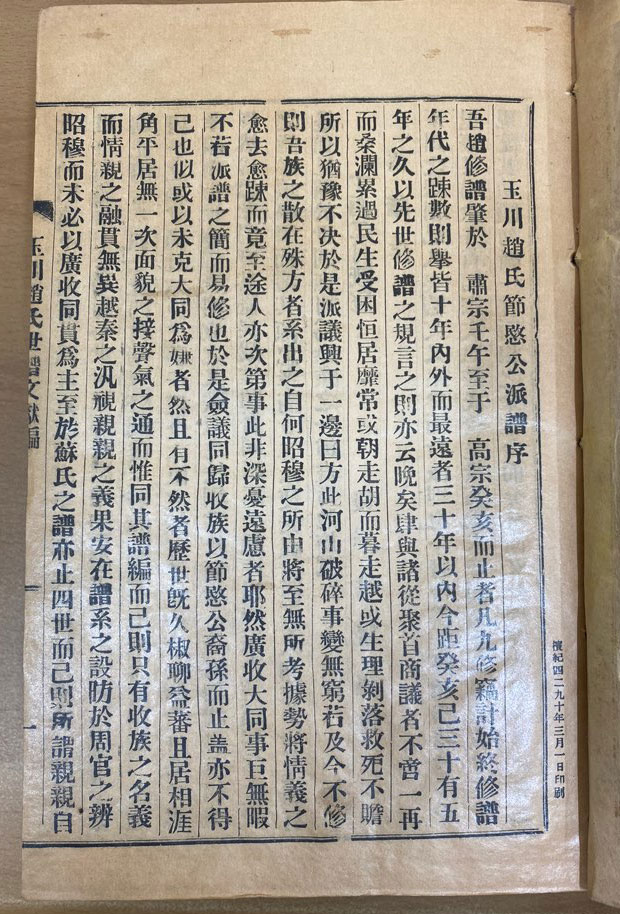 玉川趙氏節愍公派譜序
吾趙修譜肇於　肅宗壬午至于　高宗癸亥而止者凡九修竊計始終修譜
年代之踈數則擧皆十年內外而最遠者三十年以內今距癸亥已三十有五
年之久以先世修譜之規言之則亦云晩矣肆與諸從聚首商議者不啻一再
而桑瀾累過民生受困恒居靡常或朝走胡而暮走越或生理剝落救死不贍
所以猶豫不决於是派議興于一邊曰方此河山破碎事變無窮若及今不修
則吾族之散在殊方者系出之自何昭穆之所由將至無所考據勢將情義之
愈去愈踈而竟至途人亦次第事此非深憂遠慮者耶然廣收大同事巨無暇
不若派譜之簡而易修也於是僉議同歸收族以節愍公裔孫而止盖亦不得
已也似或以未克大同爲嫌者然且有不然者歷世旣久椒聊益蕃且居相涯
角平居無一次面貌之接聲氣之通而惟同其譜編而已則只有收族之名義
而情親之融貫無異越秦之汎視親親之義果安在譜系之設昉於周官之辨
昭穆而未必以廣收同貫爲主至於蘇氏之譜亦止四世而已則所謂親親自
玉川趙氏世譜文獻編
一
檀紀四二九十年三月一日印刷